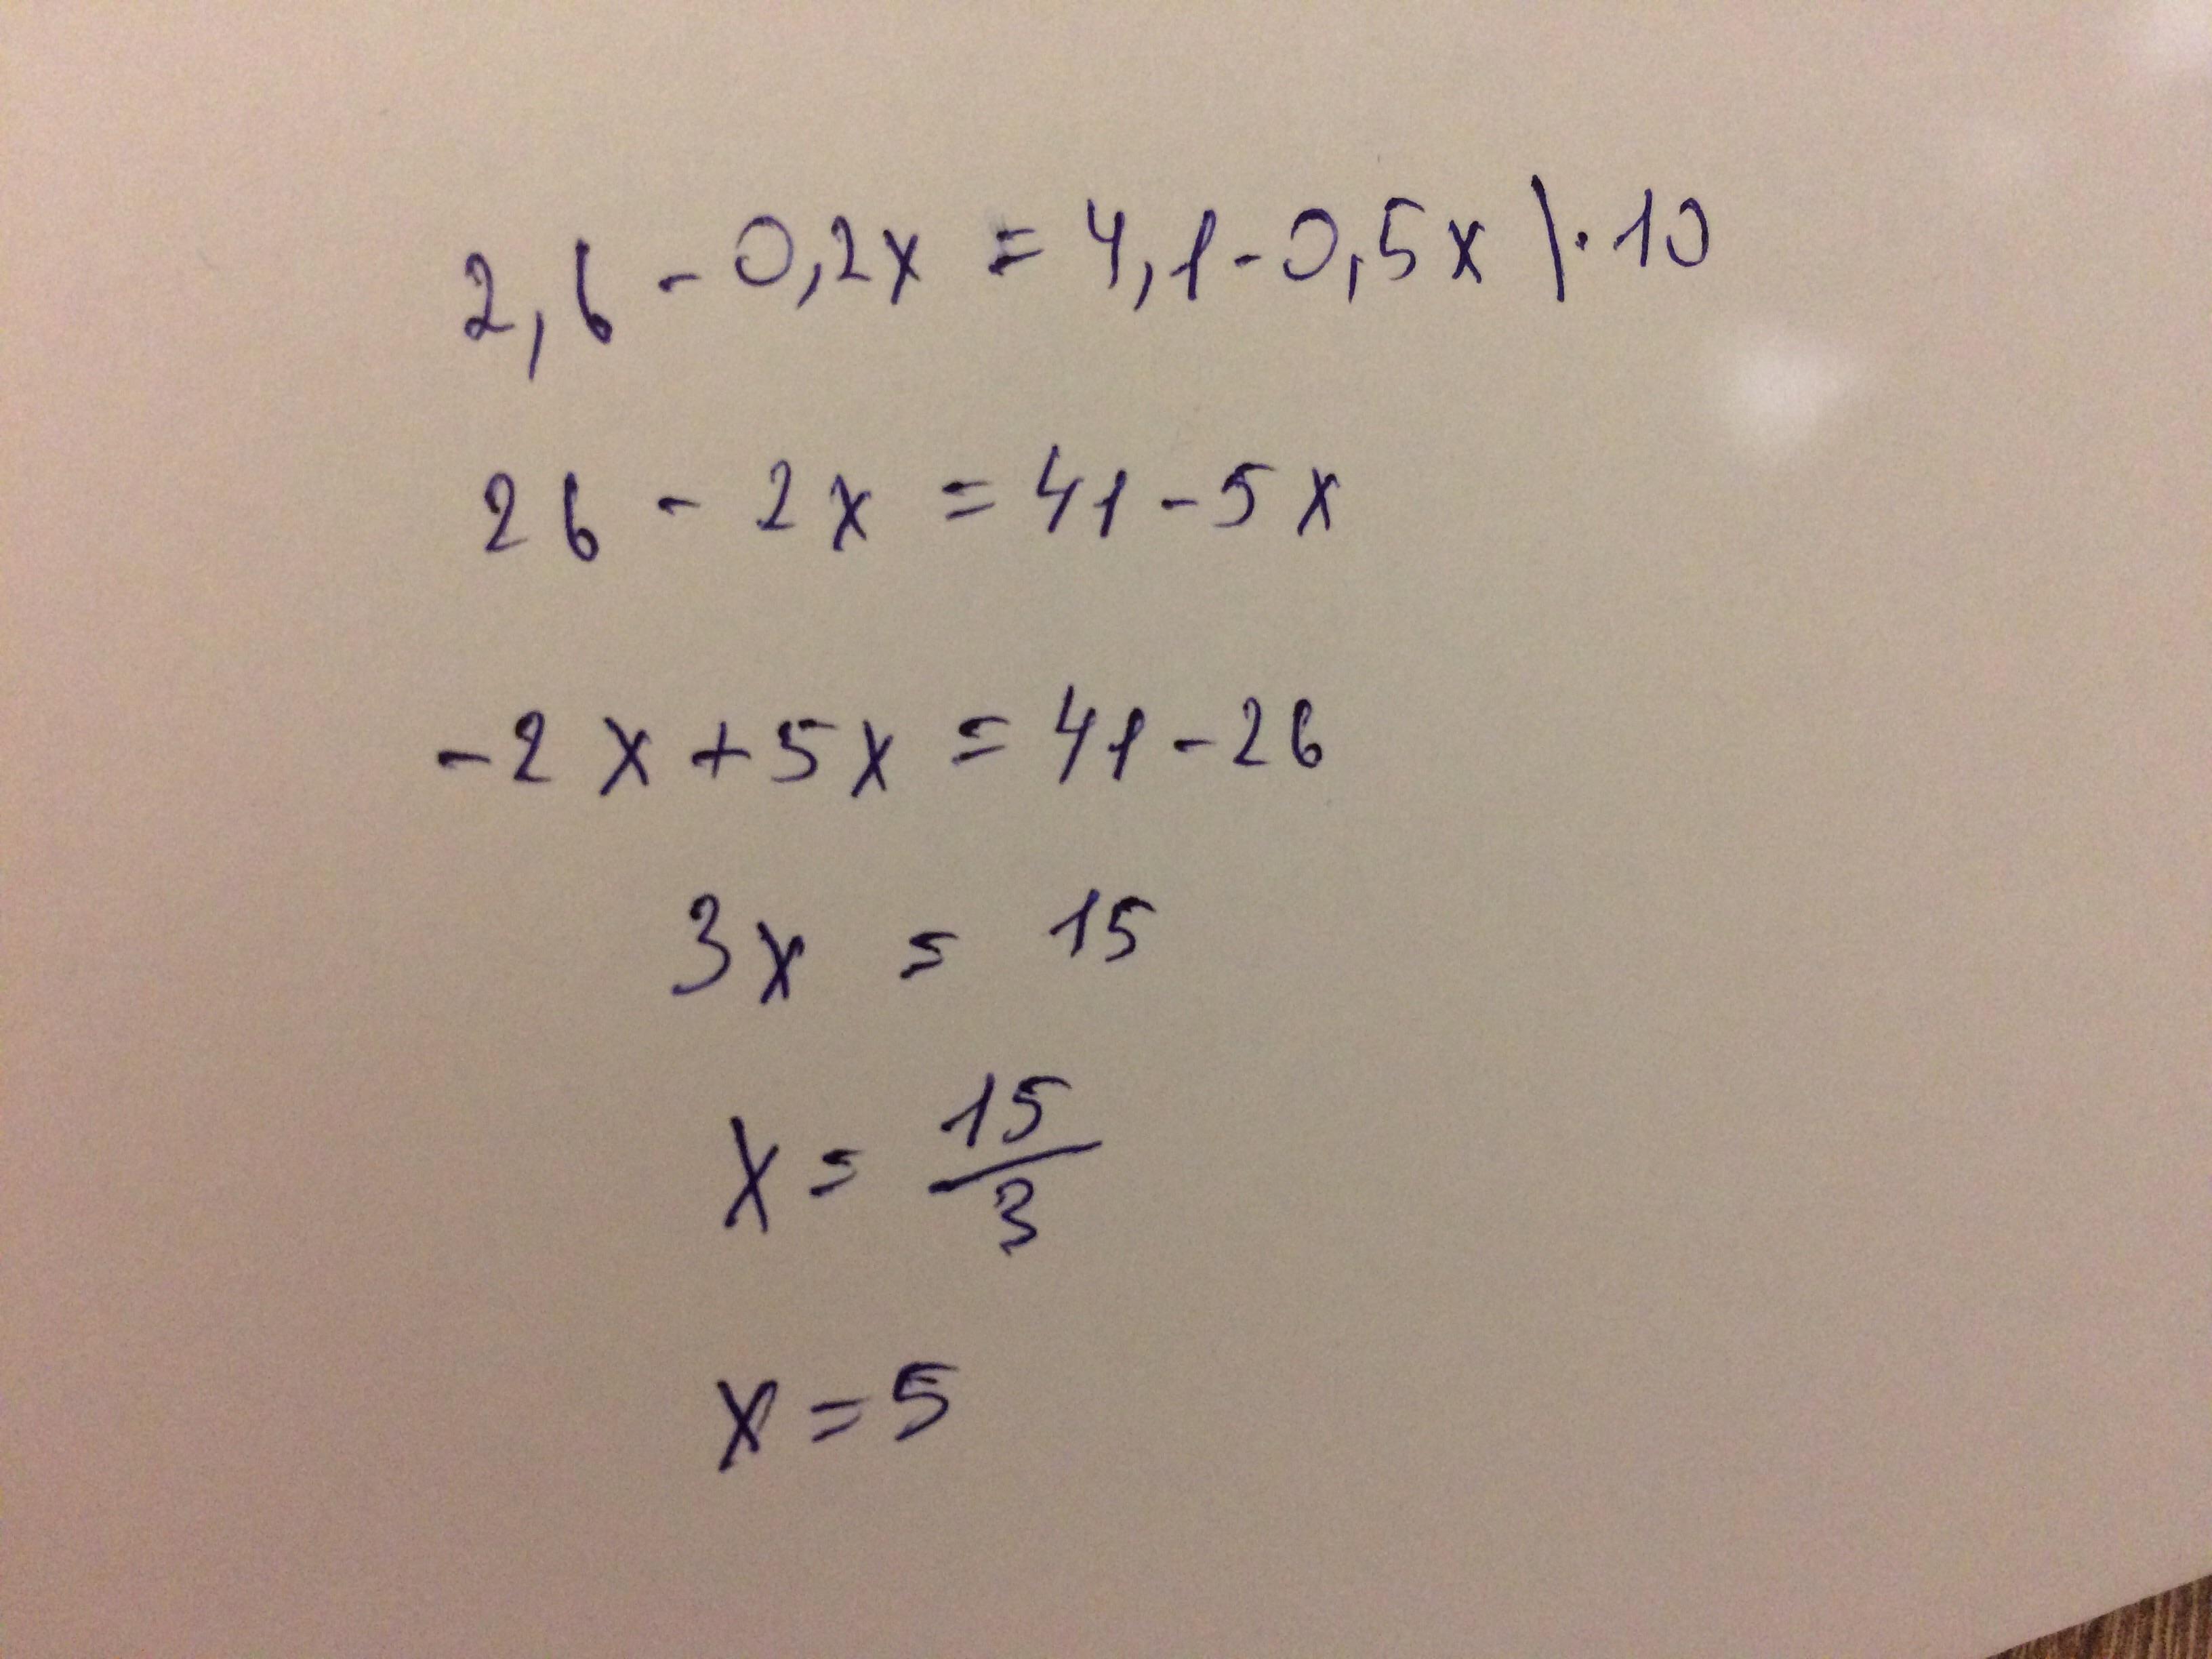 2,6 - 0,2x = 4,1 - 0,5x |·10
26 - 2x = 41 - 5x
-2x + 5x = 41 - 26
3x = 15
x = 15/3
x = 5